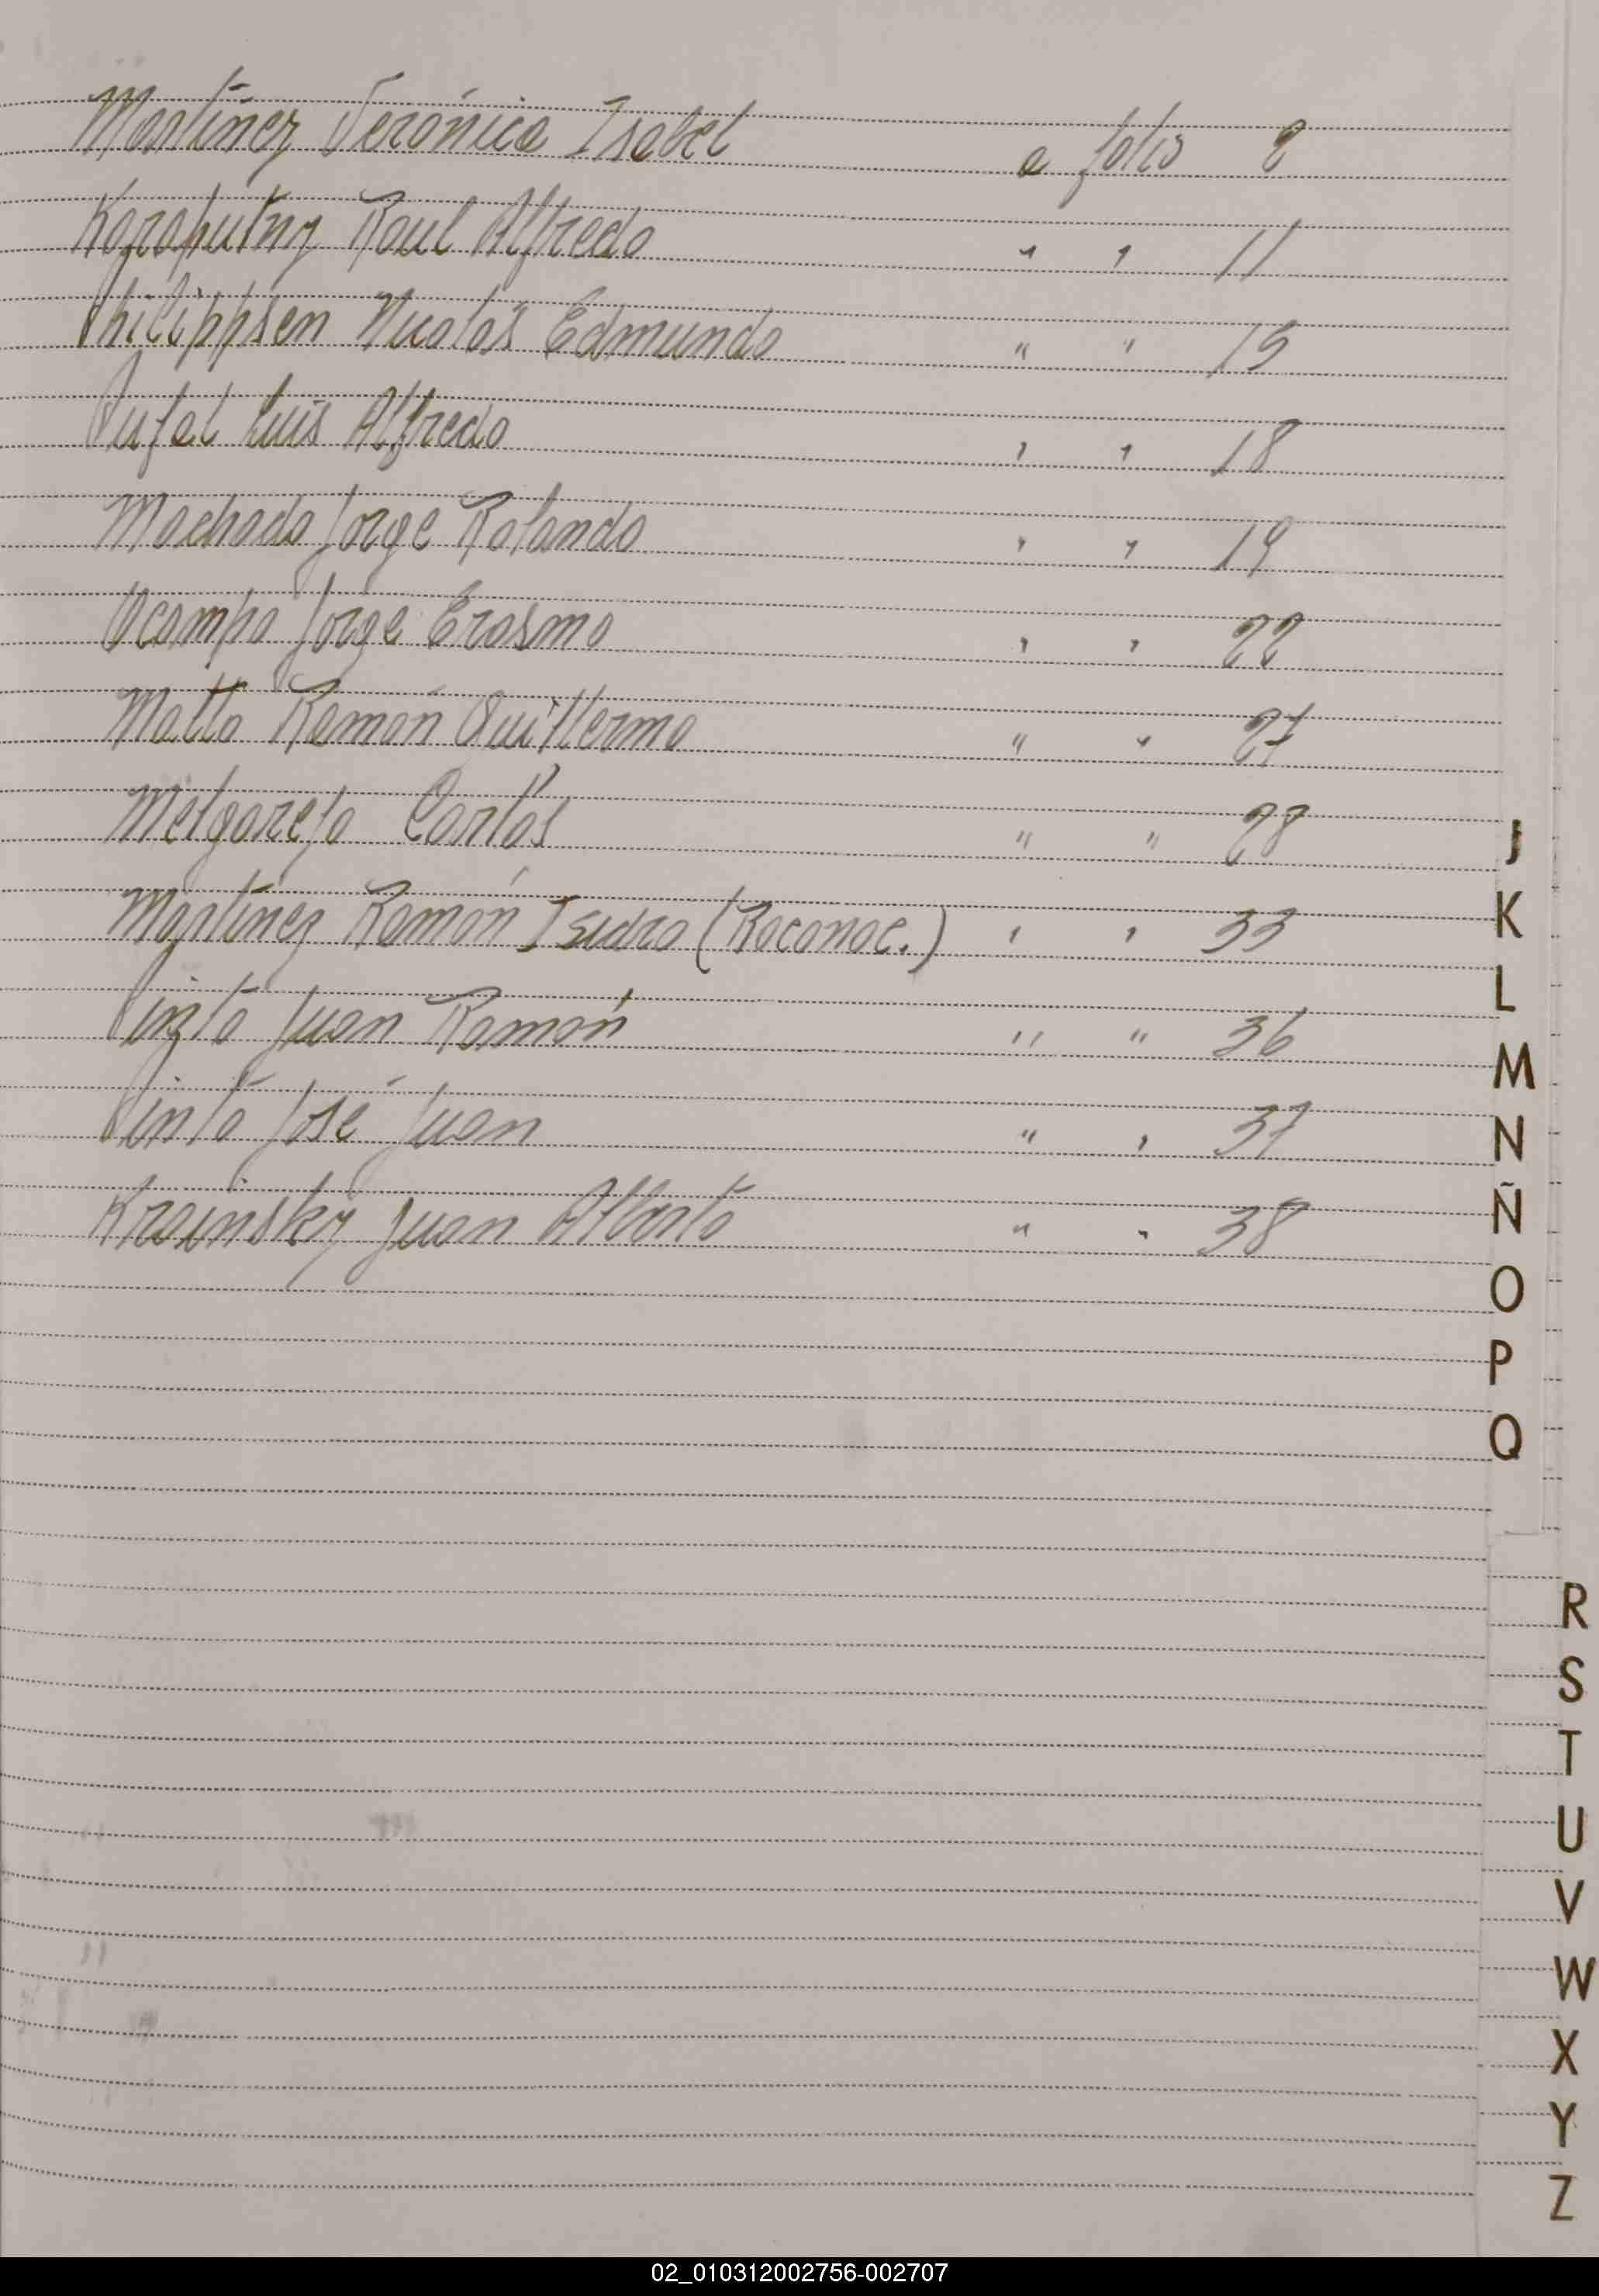 Martínez Verónica Isabel a folio 2
Karaputny Raul Alfredo " " 11
Philippsen Nicolás Edmundo " " 15
Luis Alfredo " " 18
Machado Jorge Rolando " " 19
Ocampo Jorge Erasmo " " 22
Matto Ramón Guillermo " " 27
Melgarejo Carlos " " 28
Martínez Ramón Isidro (Reconoc.) " " 33
Pinto Juan Ramón " " 36
Pinto José Juan " " 37
Krainsky Juan Alberto " " 38
J
K
L
M
N
Ñ
O
P
Q
R
S
T
U
V
W
X
Y
Z
02_010312002756-002707